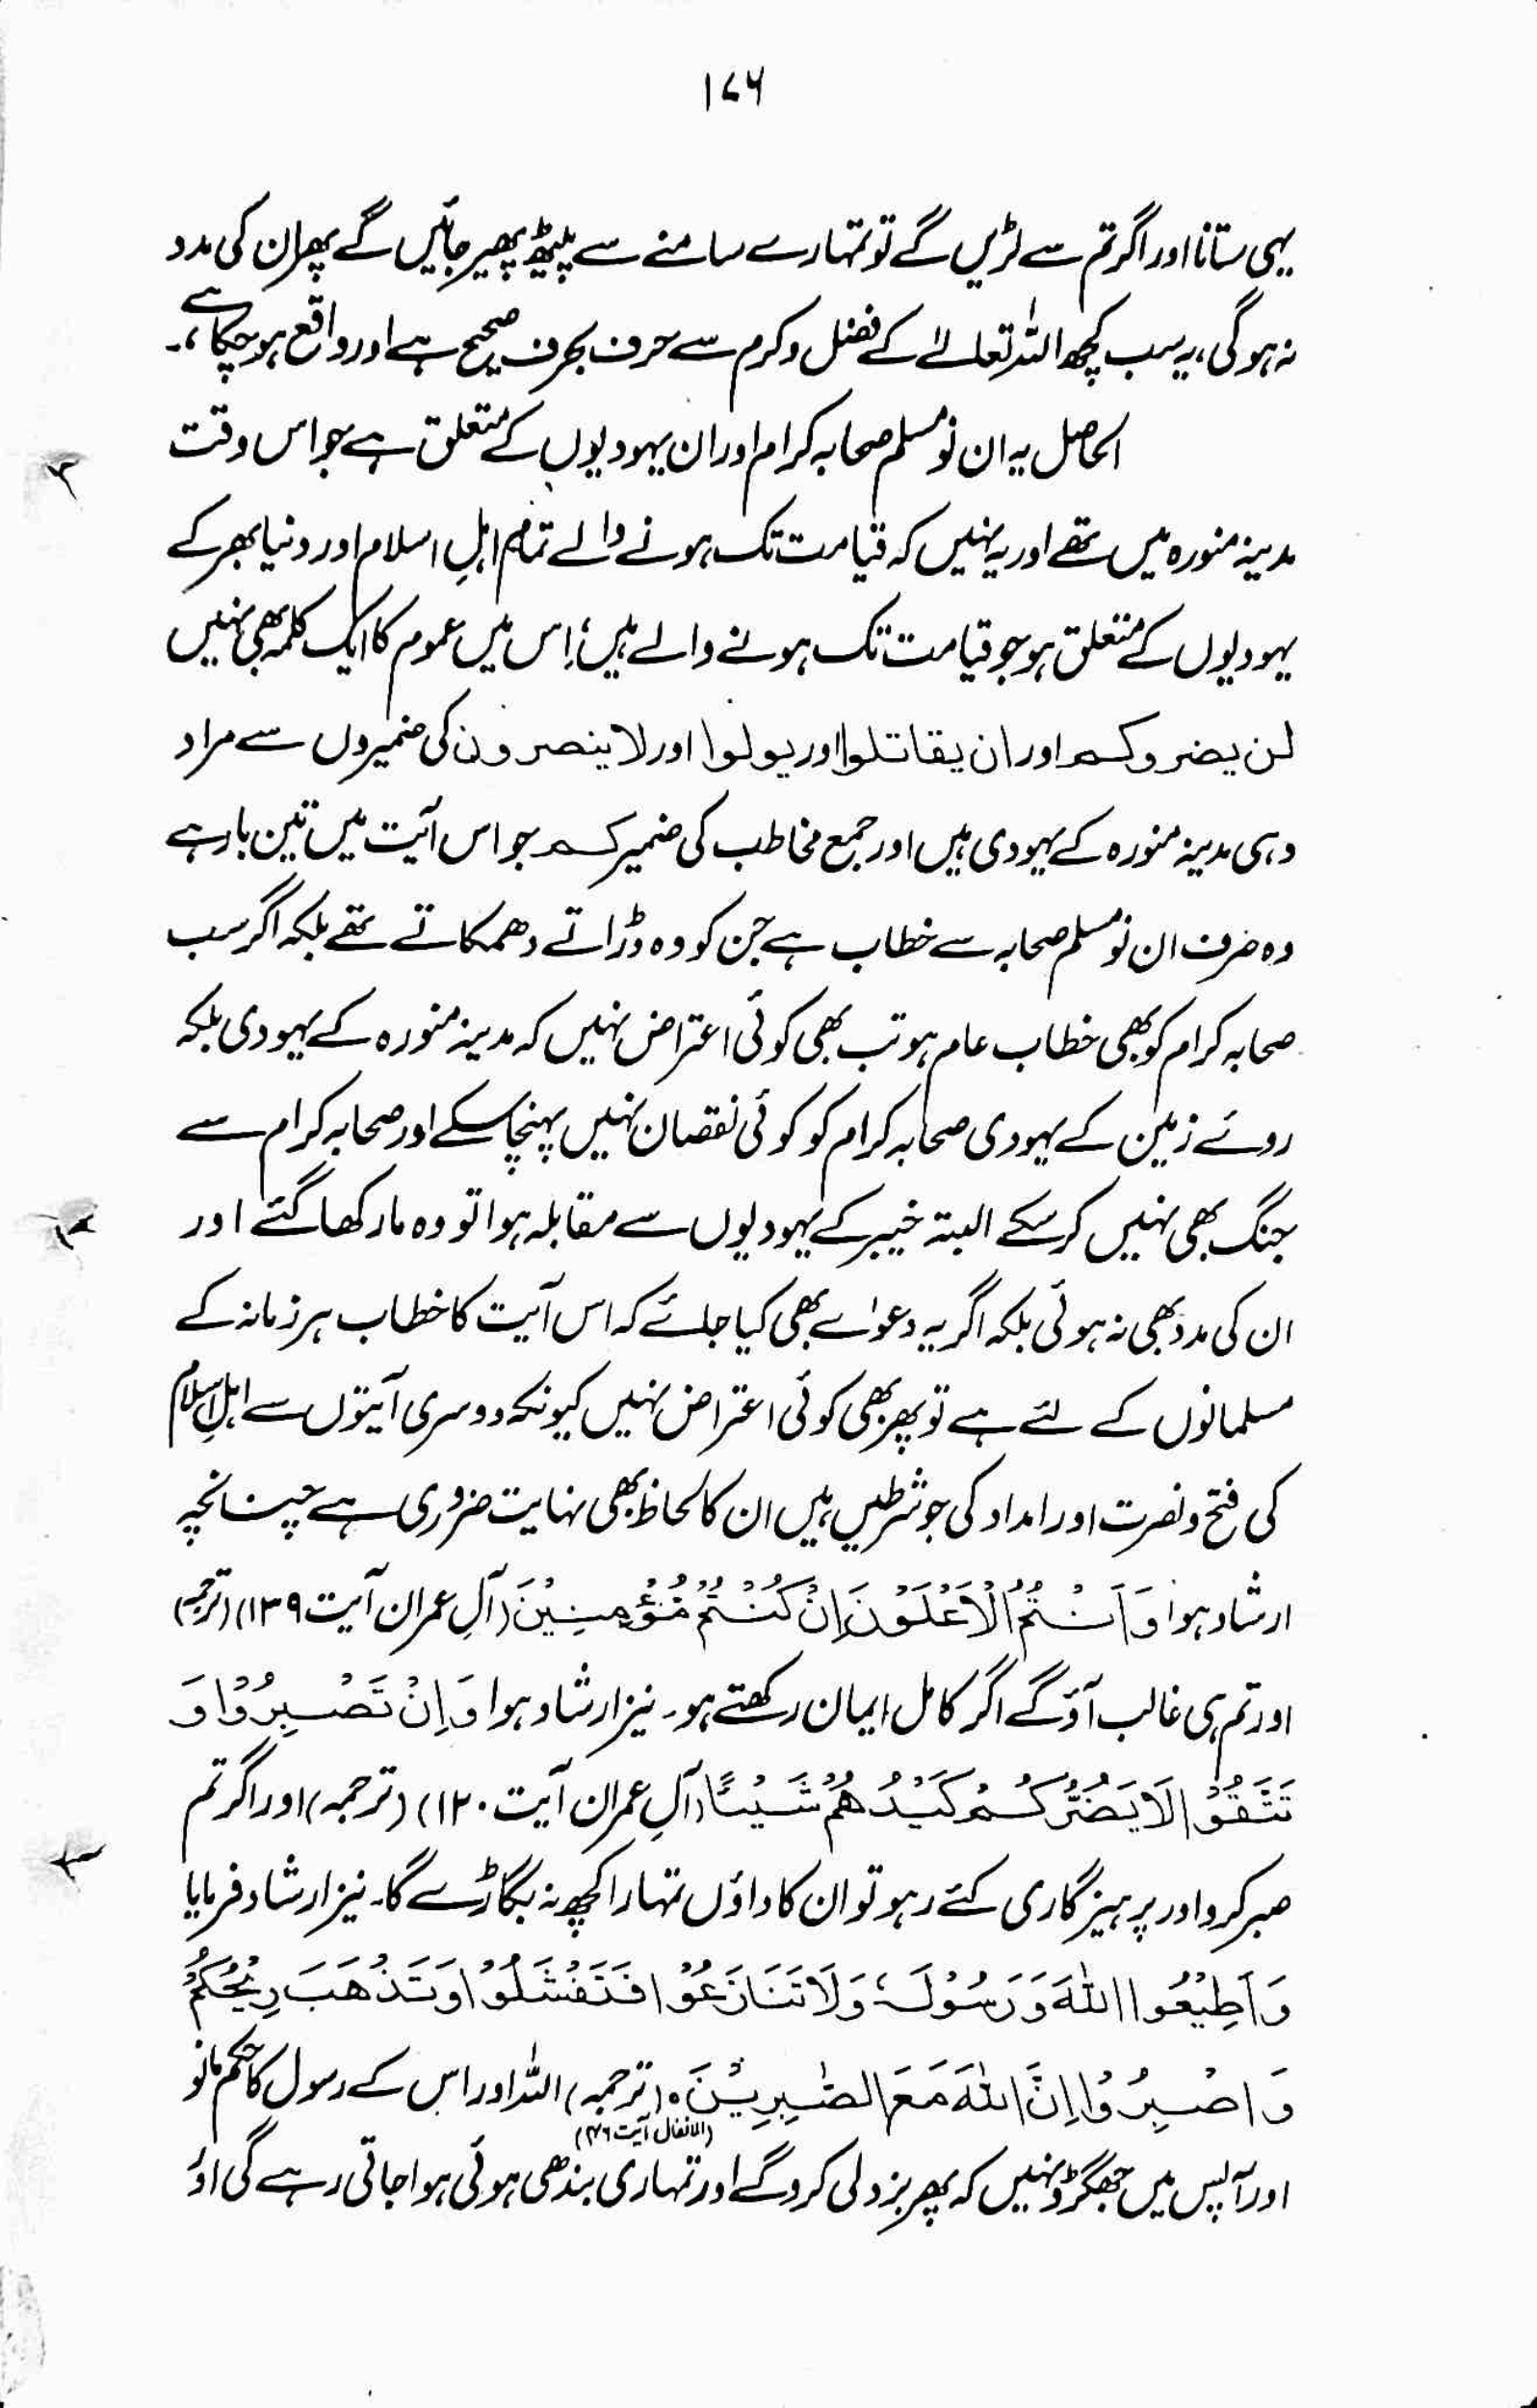 ۱۷۶
یہی ستانا اور اگر تم سے لڑیں گے تو تمہارے سامنے سے پیٹھ پھیر جائیں گے پھر ان کی مدد
نہ ہوگی، یہ سب کچھ اللہ تعالےٰ کے فضل وکرم سے حرف بحرف صحیح ہے اور واقع ہو چکا ہے،۔
الحاصل یہ ان نو مسلم صحابہ کرام اور ان یہودیوں کے متعلق ہے جو اس وقت
مدینہ منورہ میں تھے اور یہ نہیں کہ قیامت تک ہونے والے تمام اہلِ اسلام اور دنیا بھر کے
یہودیوں کے متعلق ہو جو قیامت تک ہونے والے ہیں، اِس میں عموم کا ایک کلمہ بھی نہیں
لن یضروکم اور ان یقاتلوا اور یولوا اور لا ینصرون کی ضمیروں سے مراد
وہی مدینہ منورہ کے یہودی ہیں اور جمع مخاطب کی ضمیر کم جو اس آیت میں تین بار ہے
وہ صرف ان نو مسلم صحابہ سے خطاب ہے جن کو وہ ڈراتے دھمکاتے تھے بلکہ اگر سب
صحابہ کرام کو بھی خطاب عام ہو تب بھی کوئی اعتراض نہیں کہ مدینہ منورہ کے یہودی بلکہ
روئے زمین کے یہودی صحابہ کرام کو کوئی نقصان نہیں پہنچا سکے اور صحابہ کرام سے
جنگ بھی نہیں کر سکے البتہ خیبر کے یہودیوں سے مقابلہ ہوا تو وہ مار کھا گئے اور
ان کی مدد بھی نہ ہوئی بلکہ اگر یہ دعوٰے بھی کیا جائے کہ اس آیت کا خطاب ہر زمانہ کے
مسلمانوں کے لئے ہے تو پھر بھی کوئی اعتراض نہیں کیونکہ دوسری آیتوں سے اہلِ اسلام
کی فتح و نصرت اور امداد کی جو شرطیں ہیں ان کا لحاظ بھی نہایت ضروری ہے چنانچہ
ارشاد ہوا وَاَنْتُمُ الْاَعْلَوْنَ اِنْ كُنْتُمْ مُّؤْمِنِيْنَ (آلِ عمران آیت ۱۳۹) (ترجمہ)
اور تم ہی غالب آؤ گے اگر کامل ایمان رکھتے ہو۔ نیز ارشاد ہوا وَاِنْ تَصْبِرُوْا وَ
تَتَّقُوْا لَا يَضُرُّكُمْ كَيْدُهُمْ شَيْئًا (آلِ عمران آیت ۱۲۰) (ترجمہ) اور اگر تم
صبر کرو اور پرہیزگاری کئے رہو تو ان کا داؤں تمہارا کچھ نہ بگاڑے گا۔ نیز ارشاد فرمایا
وَاَطِيْعُوا اللّٰهَ وَرَسُوْلَهٗ وَلَا تَنَازَعُوْا فَتَفْشَلُوْا وَتَذْهَبَ رِيْحُكُمْ
وَاصْبِرُوْا اِنَّ اللّٰهَ مَعَ الصّٰبِرِيْنَ ۰ (ترجمہ) اللہ اور اس کے رسول کا حکم مانو
(الانفال آیت ۴۶)
اور آپس میں جھگڑو نہیں کہ پھر بزدلی کرو گے اور تمہاری بندھی ہوئی ہوا جاتی رہے گی اور